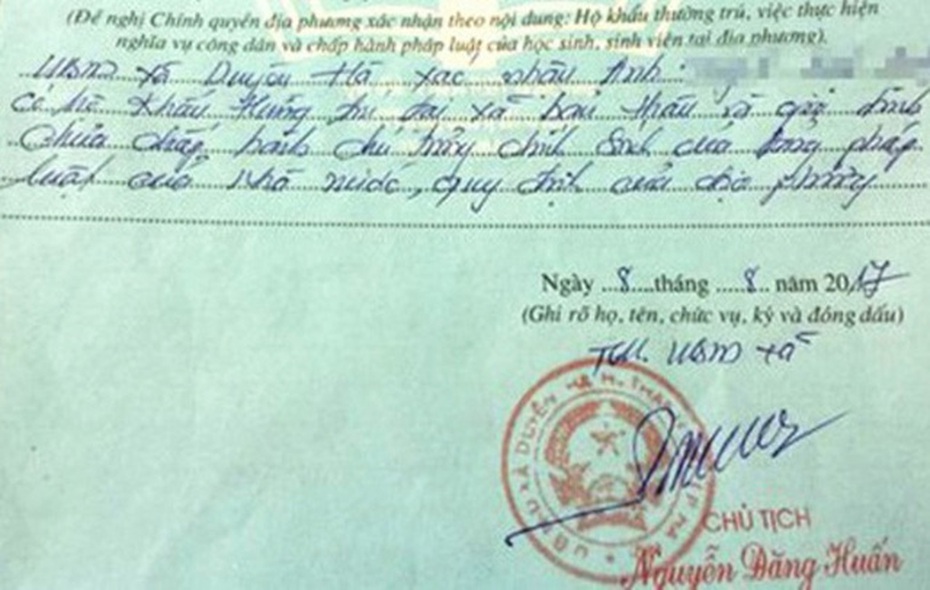 (Đề nghị Chính quyền địa phương xác nhận theo nội dung: Hộ khẩu thường trú, việc thực hiện
nghĩa vụ công dân và chấp hành pháp luật của học sinh, sinh viên tại địa phương).
UBND xã Duyên Hà xác nhận Anh:
Có hộ khẩu thường trú tại xã bản thân và gia đình
Chưa chấp hành chủ trương chính sách của Đảng pháp
luật của nhà nước, quy định của địa phương
Ngày 8 tháng 8 năm 2017
(Ghi rõ họ, tên, chức vụ, ký và đóng dấu)
TM. UBND xã
U.B.N.D XÃ DUYÊN HÀ H. THANH
CHỦ TỊCH
Nguyễn Đăng Huấn